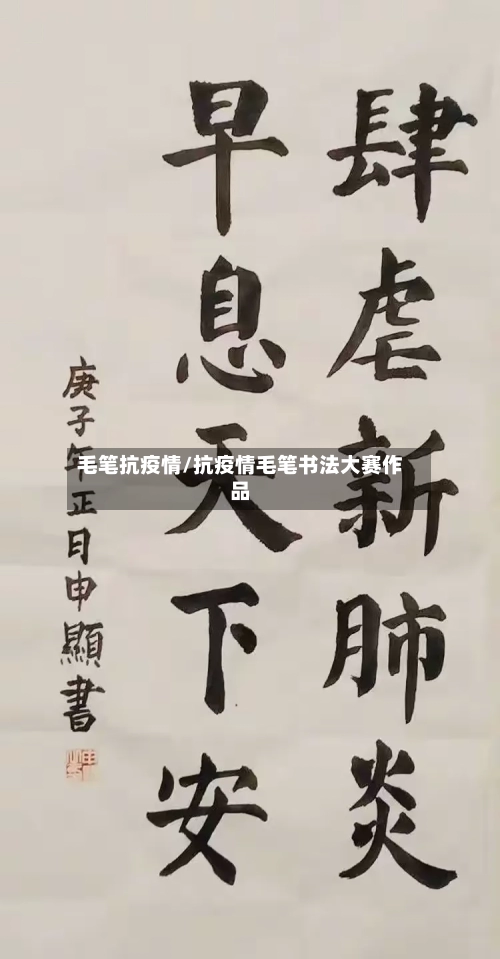 肆虐新肺炎
早息天下安
庚子年正月申顯書
毛笔抗疫情/抗疫情毛笔书法大赛作
品